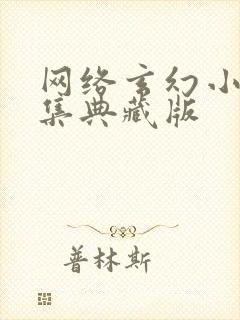 网络玄幻小
集典藏版
普林斯